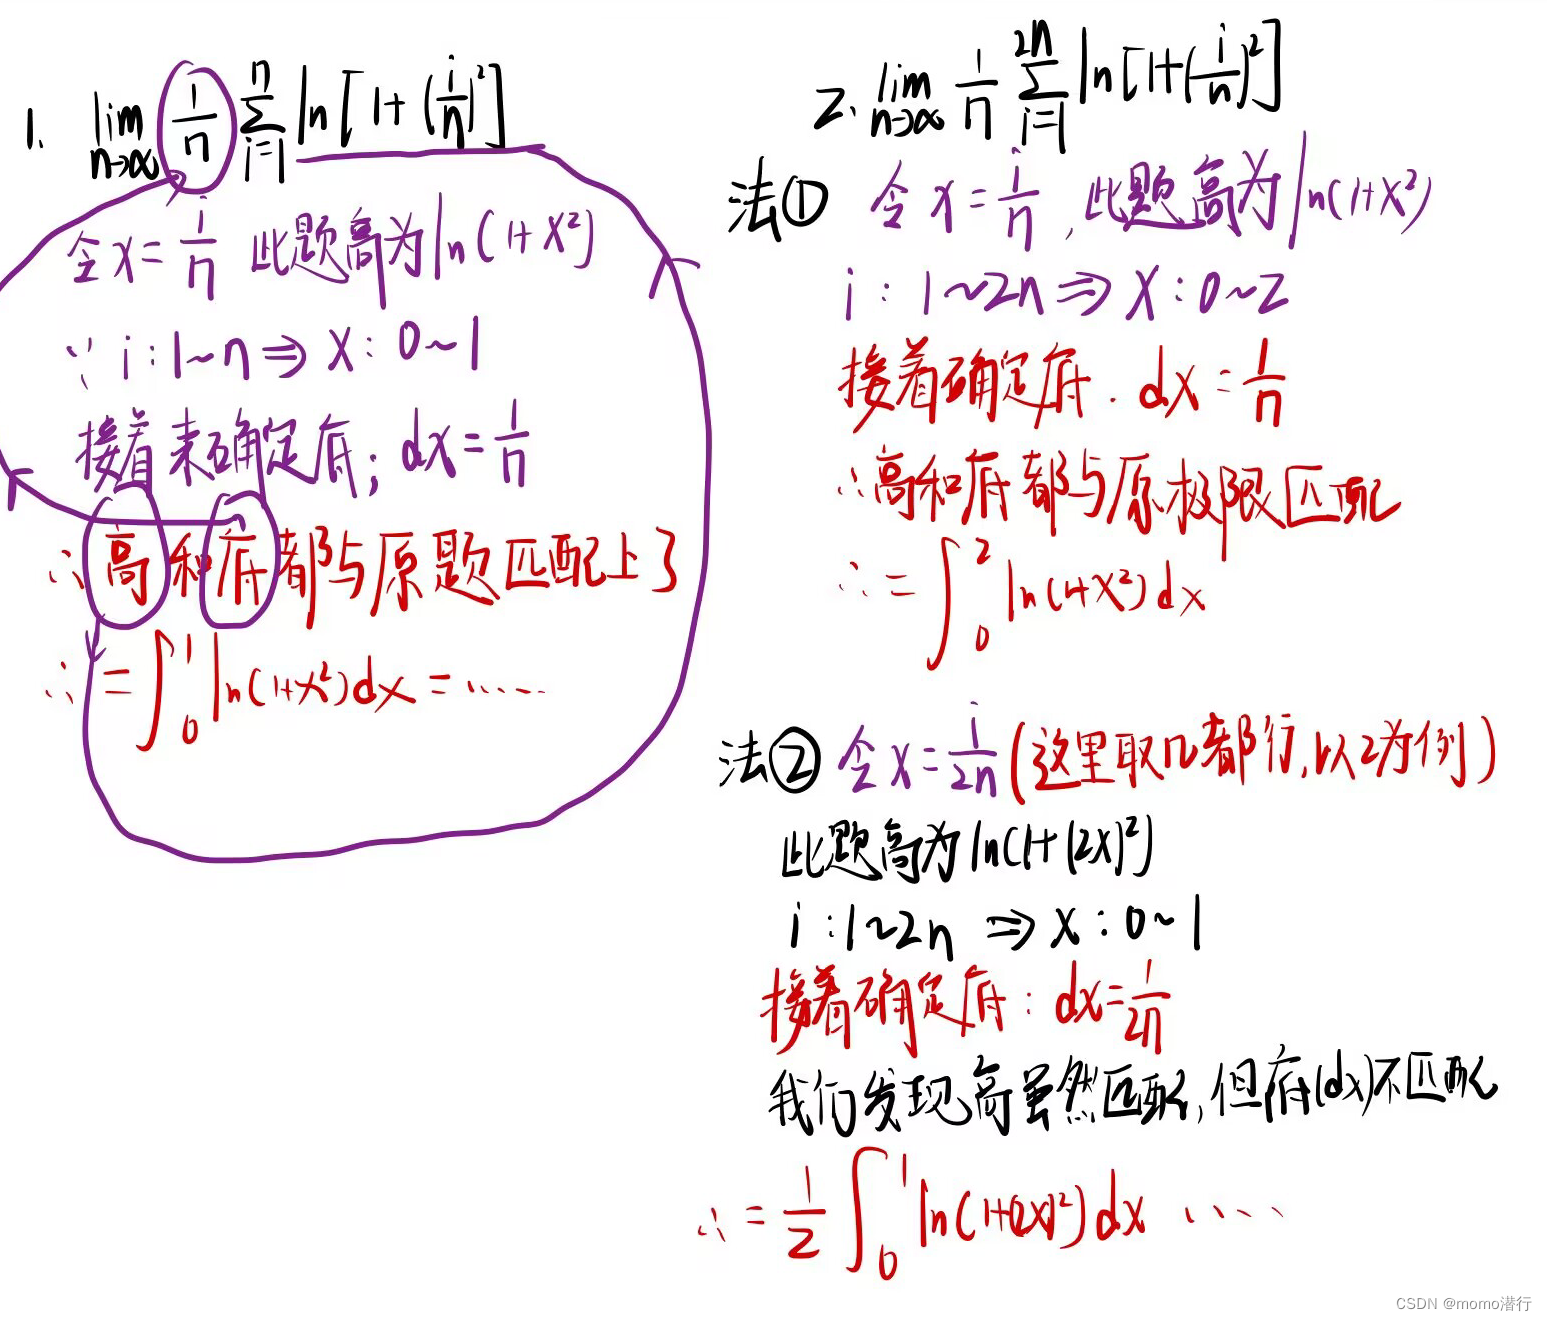 1. lim n→∞ 1/n ∑ i=1 n ln[1+(i/n)²]
令x=i/n 此题高为ln(1+x²)
∵ i:1~n⇒x:0~1
接着来确定底;dx=1/n
∴高和底都与原题匹配上了
∴=∫₀¹ ln(1+x²)dx=……
2. lim n→∞ 1/n ∑ i=1 2n ln[1+(i/n)²]
法① 令x=i/n,此题高为ln(1+x²)
i:1~2n⇒x:0~2
接着确定底.dx=1/n
∴高和底都与原极限匹配
∴=∫₀² ln(1+x²)dx
法② 令x=i/2n(这里取几都行,以2为例)
此题高为ln(1+(2x)²)
i:1~2n⇒x:0~1
接着确定底:dx=1/2n
我们发现高虽然匹配,但底(dx)不匹配
∴=1/2∫₀¹ ln(1+(2x)²)dx ....
CSDN @momo潜行